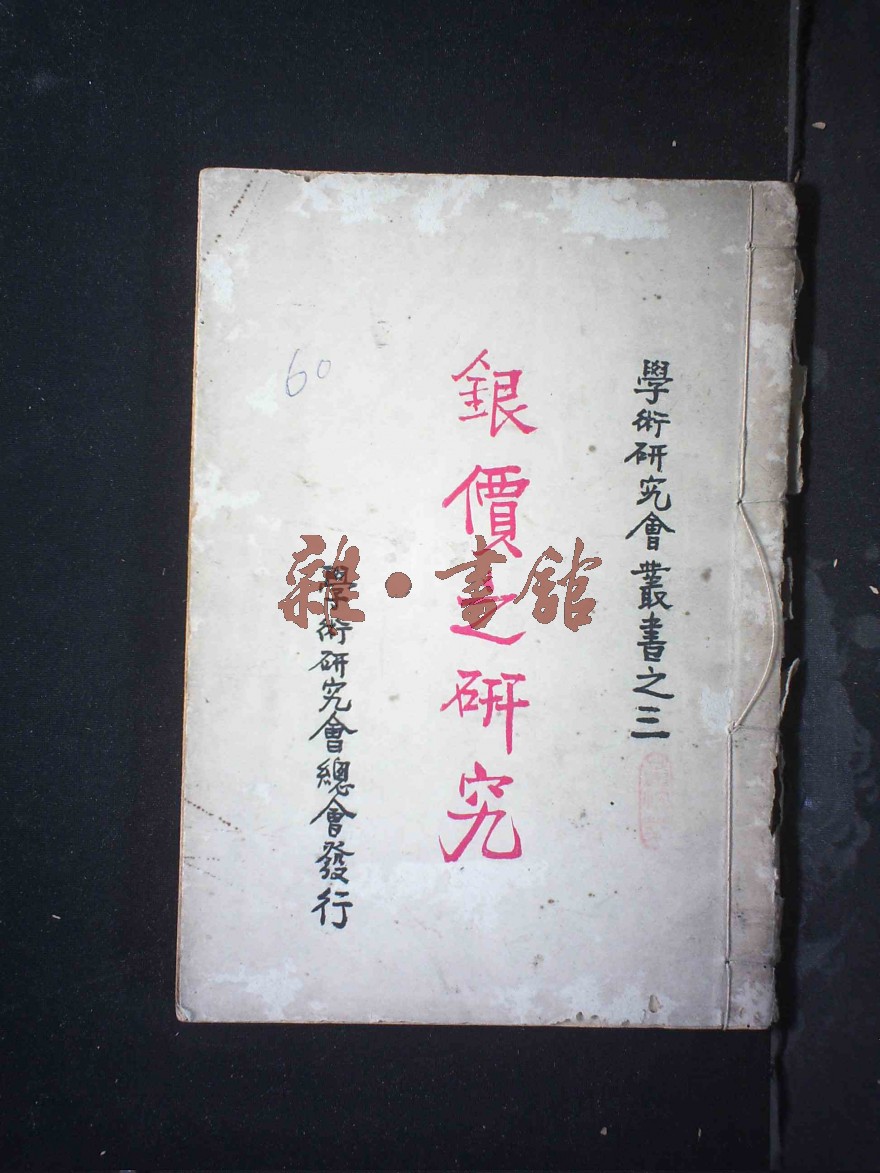 學術研究會叢書之三
銀價之研究
學術研究會總會發行
60
雜·書館